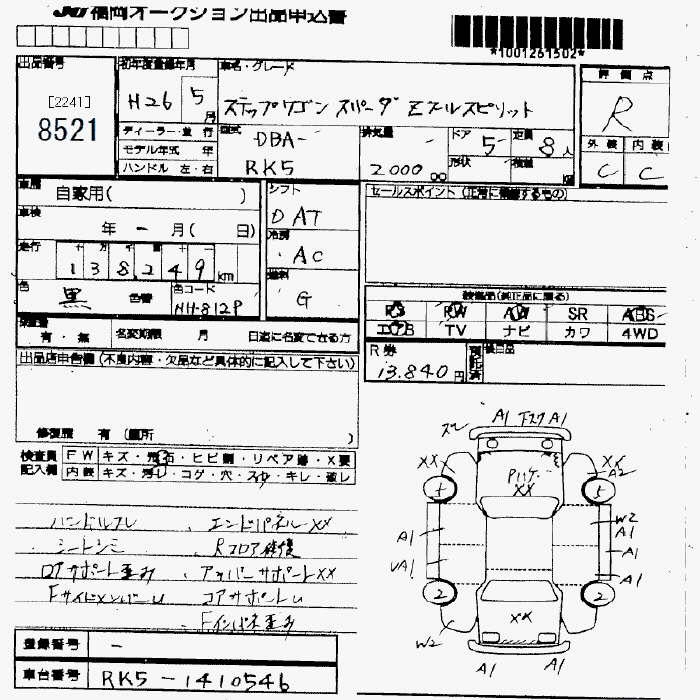 JU福岡オークション出品申込書
*1001261502*
出品番号
[2241]
8521
初年度登録年月
H26 5月
ディーラー・並行
モデル年式 年
ハンドル 左・右
車名・グレード
ステップワゴン スパーダ Zクールスピリット
型式
DBA-
RK5
排気量
2000cc
ドア
5
形状
定員
8人
積載
kg
評価点
R
外装 内装
C C
車歴
自家用( )
車検
年 - 月( 日)
走行
十 万 千 百 十 一
138249km
色
黒
色替
色コード
NH-812P
シフト
DAT
冷房
AC
燃料
G
セールスポイント(正常に機能するもの)
装備品(純正品に限る)
PS PW AW SR ABS
エアB TV ナビ カワ 4WD
保証書
有・無
名変期限 月 日迄に名変できる方
R券
13.840円
預託済
後日品
出品店申告欄(不良内容・欠品など具体的に記入して下さい)
修復歴 有 (箇所 )
検査員記入欄
FW キズ・飛石・ヒビ割・リペア跡・X要
内装 キズ・汚レ・コゲ・穴・スレ・キレ・破レ
ハンドルスレ 、エンドパネルXX
シートシミ 、Rフロア修復
ロアサポート歪み 、アッパーサポートXX
FサイドメンバーU コアサポートU
Fインパネ歪み
ズレ A1 下スクA1
XX XX A2
Pハゲ XX
5 5
A1 W2 A1
A1
UA1 A1
2 2
XX
W2
A1 A1
登録番号 -
車台番号 RK5-1410546